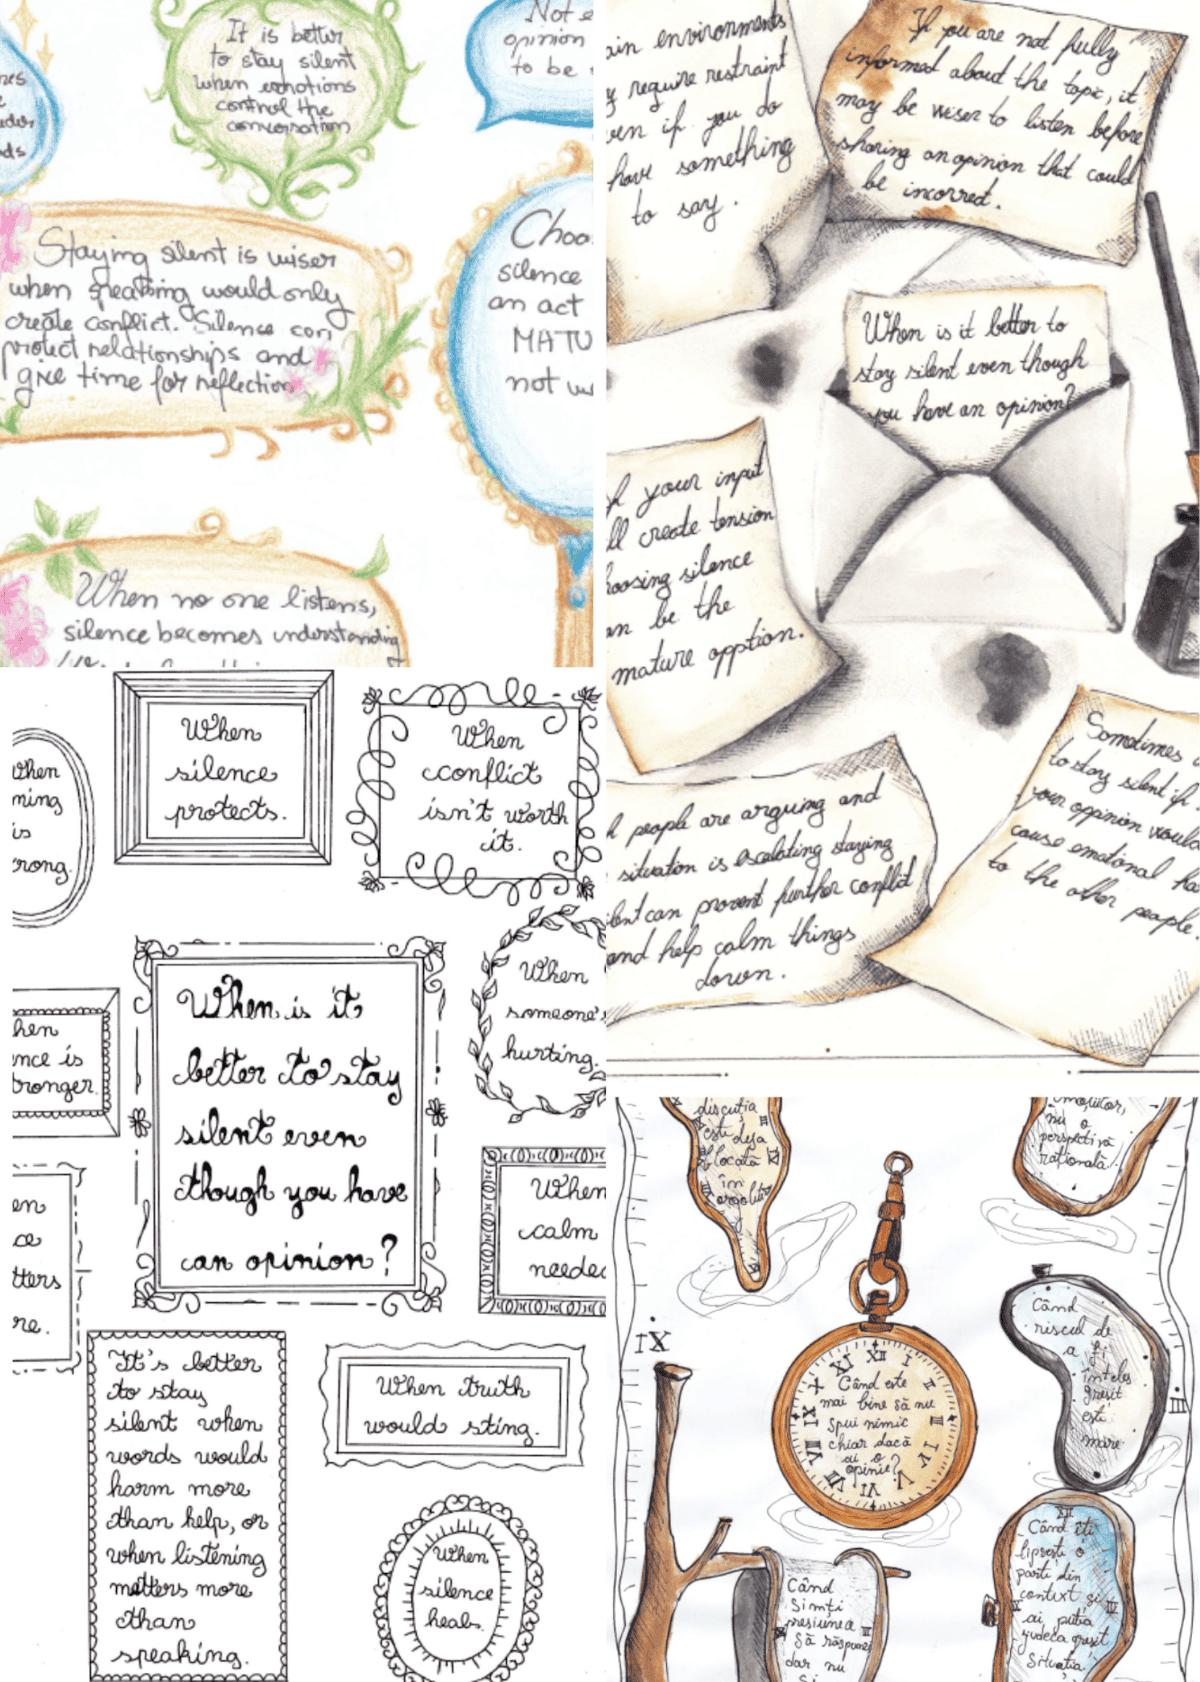 It is better
to stay silent
when emotions
control the
conversation
Not
opinion
to be
Staying silent is wiser
when speaking would only
create conflict. Silence can
protect relationships and
give time for reflection
Choo
silence
an act
MATU
not
When no one listens,
silence becomes understanding
ain environments
y require restraint
ven if you do
have something
to say.
If you are not fully
informed about the topic, it
may be wiser to listen before
sharing an opinion that could
be incorred.
When is it better to
stay silent even though
you have an opinion?
h your input
ll create tension
hoosing silence
an be the
mature opption.
people are arguing and
situation is escalating staying
lent can prevent further conflict
and help calm things
down.
Sometimes
to stay silent if
your oppinion would
cause emotional ha
to the other people.
When
ning
is
rong.
When
silence
protects.
When
conflict
isn't worth
it.
hen
nce is
tronger.
When is it
better to stay
silent even
though you have
an opinion?
When
someone's
hurting.
en
ce
tters
re.
When
calm
neede
It's better
to stay
silent when
words would
harm more
than help, or
when listening
matters more
than
speaking.
When truth
would sting.
When
silence
heals.
discuția
este deja
blocată
în
orgolii
nu o
perspectivă
rațională
IX
XII
I
II
III
IV
V
VI
VII
VIII
IX
X
XI
Când este
mai bine să nu
spui nimic
chiar dacă
ai o
opinie?
Când
riscul de
a fi
înțeles
greșit
este
mare
III
Când
simți
presiunea
să răspunzi
dar nu
Când îți
lipsește o
parte din
context și
ai putea
judeca greșit
situația.